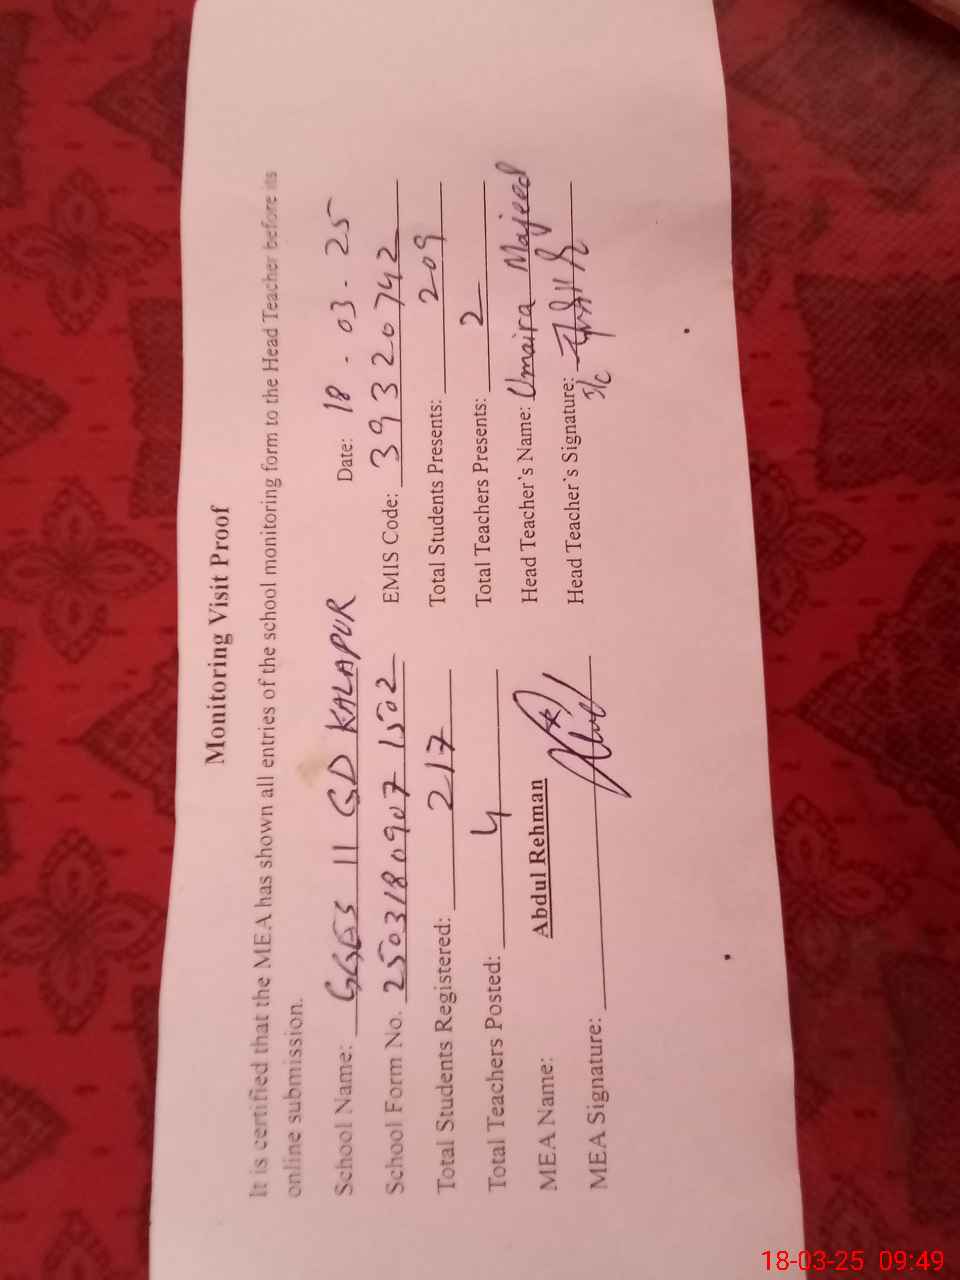 Monitoring Visit Proof
It is certified that the MEA has shown all entries of the school monitoring form to the Head Teacher before its
online submission.
School Name: GGES 11 GD KALAPUR Date: 18 - 03 - 25
School Form No. 25031809071502 EMIS Code: 39320742
Total Students Registered: 217 Total Students Presents: 209
Total Teachers Posted: 4 Total Teachers Presents: 2
MEA Name: Abdul Rehman Head Teacher's Name: Umaira Majeed
MEA Signature: Head Teacher's Signature:
18-03-25 09:49